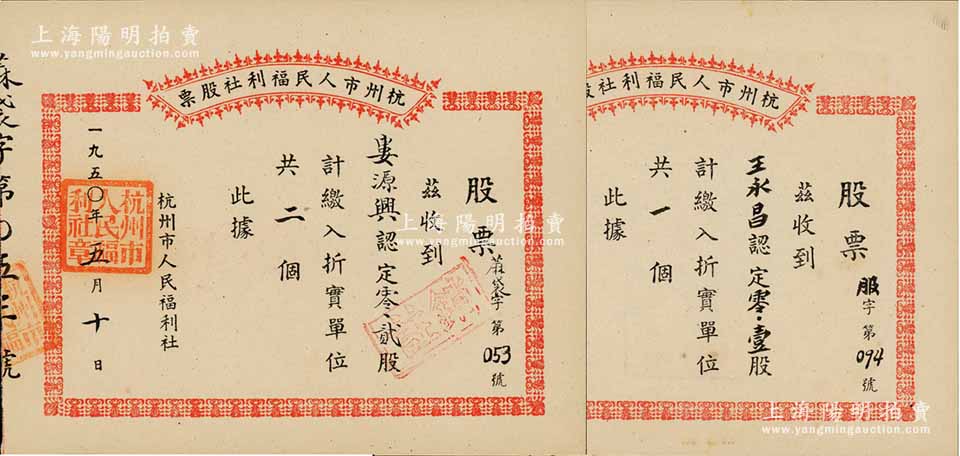 上海陽明拍賣
www.yangmingauction.com
杭州市人民福利社股票
股票
字第
053號
茲收到
婁源興認定零·貳股
計繳入折實單位
共二個
此據
杭州市人民福利社
一九五〇年五月十日
杭州市人民福利社章
上海陽明拍賣
www.yangmingauction.com
杭州市人民福利社股
股票
服字第
094號
茲收到
王永昌認定零·壹股
計繳入折實單位
共一個
此據
上海陽明拍賣
www.yangmingauction.com